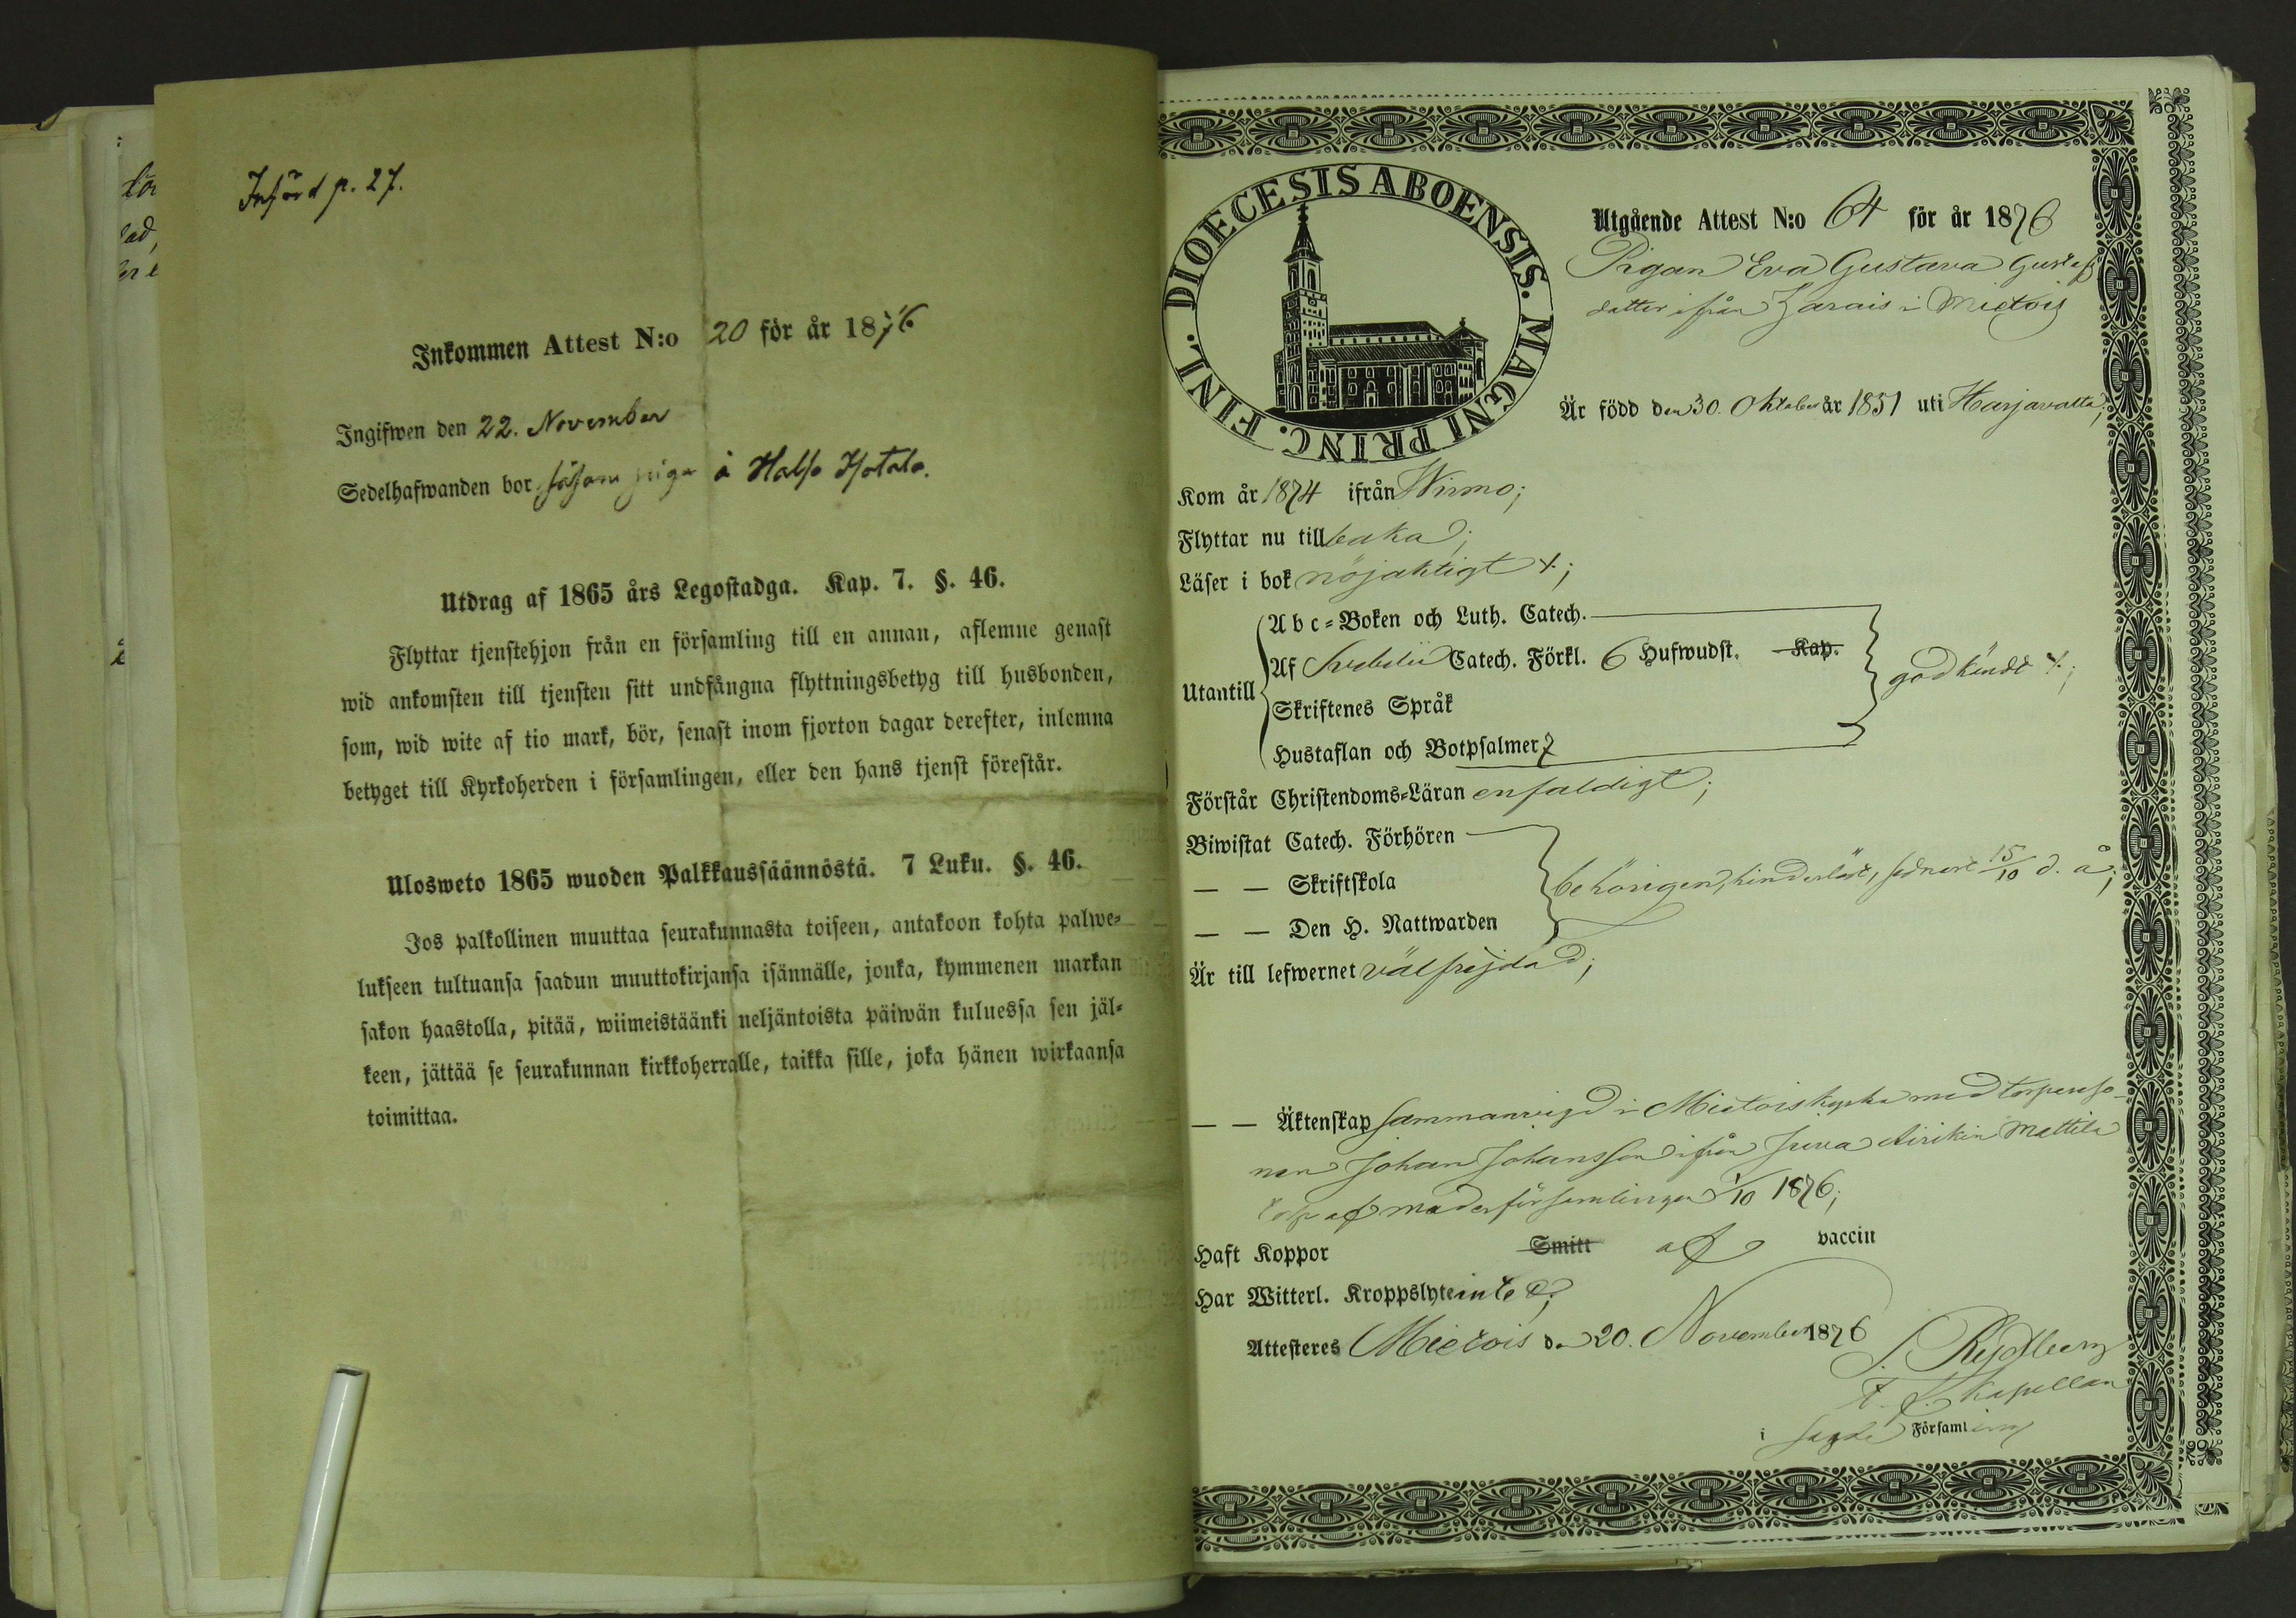 Införd p. 27.
Inkommen Attest N:o 20 för år 1876
Ingifwen den 22. November
Sedelhafwanden bor såsom piga å Halso Isotalo.
Utdrag af 1865 års Legostadga. Kap. 7. §. 46.
Flyttar tjenstehjon från en församling till en annan, aflemne genast
wid ankomsten till tjensten sitt undfångna flyttningsbetyg till husbonden,
som, wid wite af tio mark, bör, senast inom fjorton dagar derefter, inlemna
betyget till Kyrkoherden i församlingen, eller den hans tjenst förestår.
Ulosweto 1865 wuoden Palkkaussäännöstä. 7 Luku. §. 46.
Jos palkollinen muuttaa seurakunnasta toiseen, antakoon kohta palwe-
lukseen tultuansa saadun muuttokirjansa isännälle, jonka, kymmenen markan
sakon haastolla, pitää, wiimeistäänki neljäntoista päiwän kuluessa sen jäl-
keen, jättää se seurakunnan kirkkoherralle, taikka sille, joka hänen wirkaansa
toimittaa.
DIOECESIS ABOENSIS. MAGNI PRINC. FINL.
Utgående Attest N:o 64 för år 1876
Pigan Eva Gustava Gustafs
dotter ifrån Zarais i Mietois
Är född den 30. Oktober år 1851 uti Harjavalta;
Kom år 1874 ifrån Wirmo;
Flyttar nu tillbaka;
Läser i bok nöjaktigt +;
Abc-Boken och Luth. Catech.
Utantill
Af Svebelii Catech. Förkl. 6 Hufwudst. Kap.
godkändt +;
Skriftenes Språk
Hustaflan och Botpsalmer 7
Förstår Christendoms-Läran enfaldigt;
Biwistat Catech. Förhören
— — Skriftskola
behörigen, hinderlöst, sednast 15/10 d. å;
— — Den H. Nattwarden
Är till lefwernet välfrejdad;
— — Äktenskap sammanvigd i Mietois kyrka med torparso-
nen Johan Johansson ifrån Juva Airikin Mattila
torp af moderförsamlingen 1/10 1876;
Haft Koppor Smitt af vaccin
Har Witterl. Kroppslyte inte;
Attesteres Mietois d. 20. November 1876
J. Rydberg
t. f. kapellan
i sagde Församling